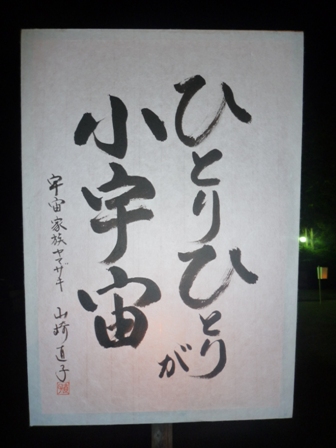 ひとりひとりが
小宇宙
宇宙家族ヤマザキ 山崎直子